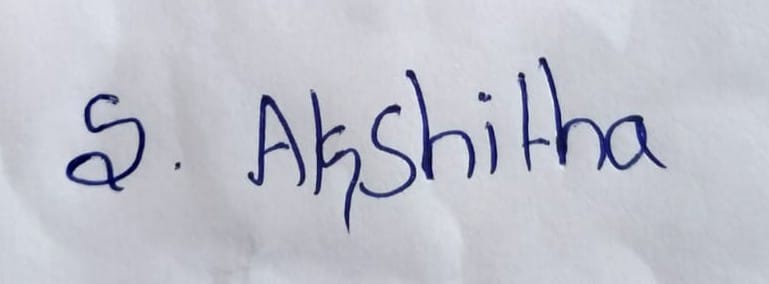 S. Akshitha